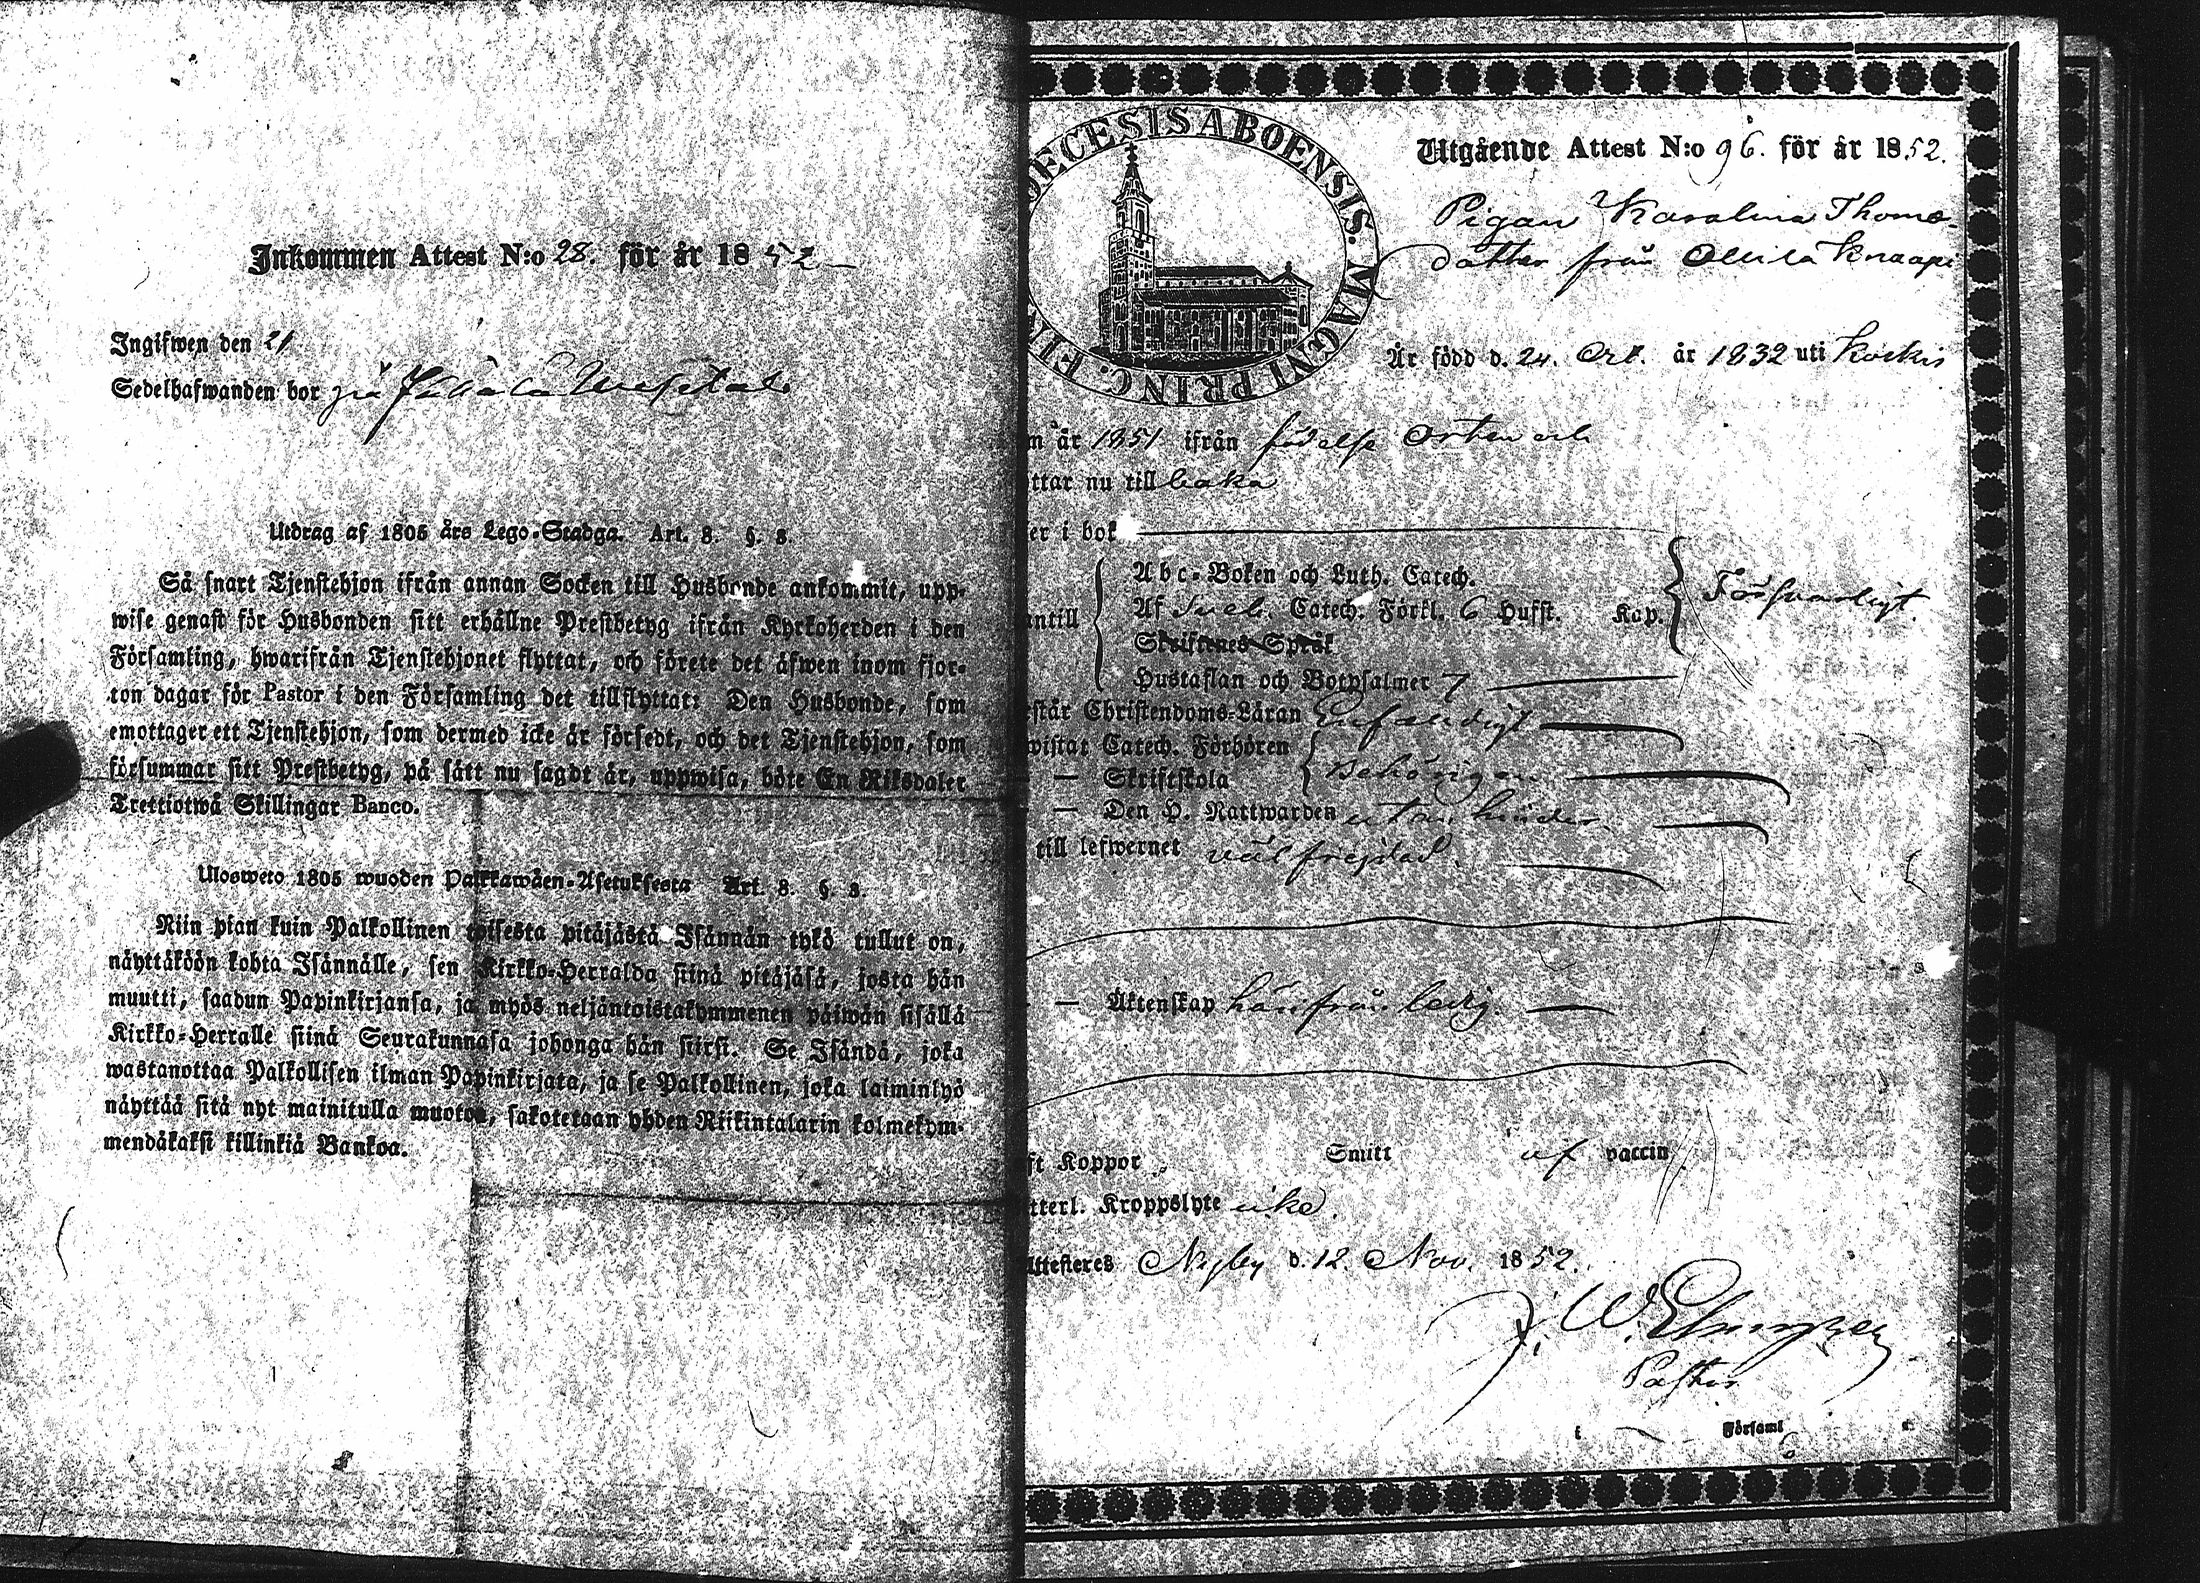 Inkommen Attest N:o 28. för år 1852
Ingifwen den 21
Sedelhafwanden bor på
Utdrag af 1805 års Lego-Stadga. Art. 8. §. 8.
Så snart Tjenstehjon ifrån annan Socken till Husbonde ankommit, upp-
wise genast för Husbonden sitt erhållne Prestbetyg ifrån Kyrkoherden i den
Församling, hwarifrån Tjenstehjonet flyttat, och förete det äfwen inom fjor-
ton dagar för Pastor i den Församling det tillflyttat: Den Husbonde, som
emottager ett Tjenstehjon, som dermed icke är försedt, och det Tjenstehjon, som
försummar sitt Prestbetyg, på sätt nu sagdt är, uppwisa, böte En Riksdaler
Trettiotwå Skillingar Banco.
Ulosweto 1805 wuoden Palkkawäen-Asetuksesta Art. 8. §. 8.
Niin pian kuin Palkollinen toisesta pitäjästä Isännän tykö tullut on,
näyttäköön kohta Isännälle, sen Kirkko-Herralda siinä pitäjäsä, josta hän
muutti, saadun Papinkirjansa, ja myös neljäntoistakymmenen päiwän sisällä
Kirkko-Herralle siinä Seurakunnasa johonga hän siirsi. Se Isändä, joka
wastanottaa Palkollisen ilman Papinkirjata, ja se Palkollinen, joka laiminlyö
näyttää sitä nyt mainitulla muotoa, sakotetaan yhden Riikintalarin kolmekym-
mendäkaksi killinkiä Bankoa.
OECESIS ABOENSIS. MAGNI PRINC. FI
Utgående Attest N:o 96. för år 1852.
Pigan Karolina Thomæ-
dotter från Ollila Knaapi
Är född d. 24. Oct. år 1832 uti Koskis
n år 1851 ifrån födelse Orten och
ttar nu tillbaka
er i bok
Abc-Boken och Luth. Catech.
antill Af Sveb. Catech. Förkl. 6 Hufst. Kap. Försvarligt.
Skriftenes Språk
Hustaflan och Botpsalmer 7
står Christendoms-Läran Enfaldigt
wistat Catech. Förhören
— Skriftskola Behörigen
— Den H. Nattwarden utan hinder.
till lefwernet välfrejdad.
— Äktenskap härifrån ledig.
ft Koppor Smitt af vaccin
tterl. Kroppslyte icke.
Attesteres Nykby d. 12. Nov. 1852.
J. W.
Pastor
i Församl